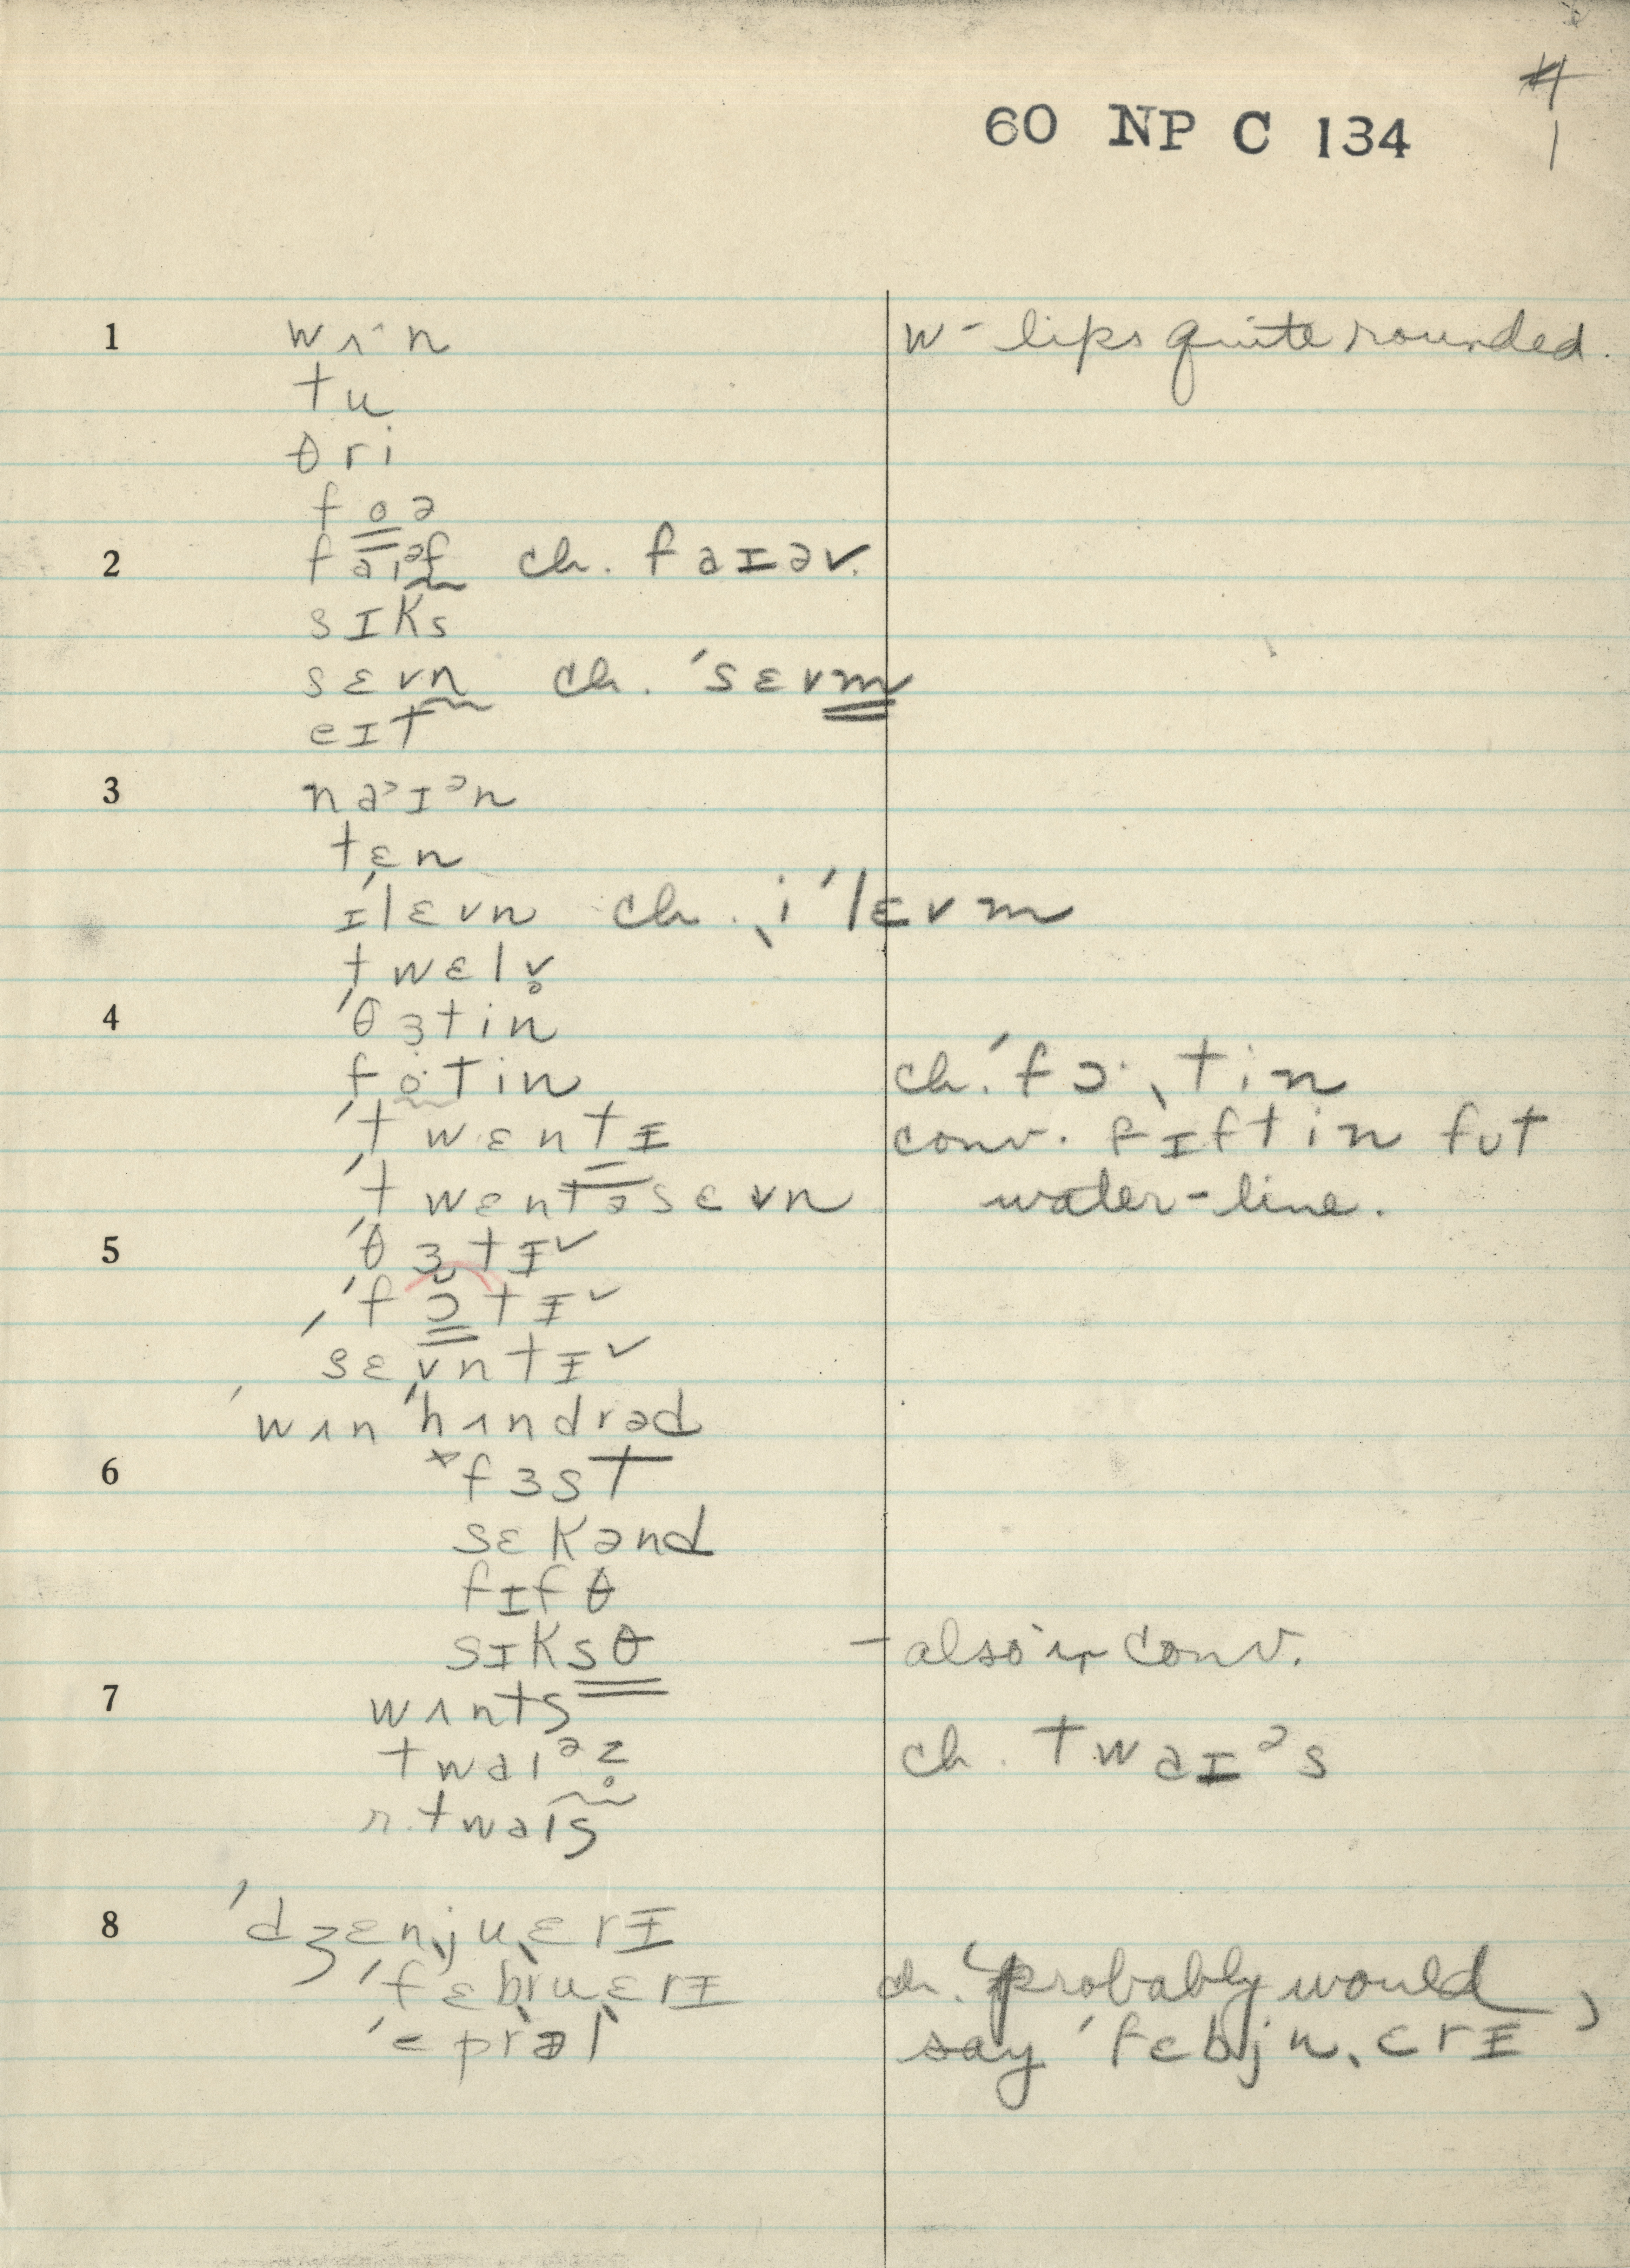 #
1
60 NP C 134
1 wʌ·n w - lips quite rounded.
tu
θri
foə
2 faɪᵊf ch. faɪəv.
sɪks
sɛvn ch. ˈsɛvm
eɪt
3 naᵊɪᵊn
tɛn
ɪˈlɛvn ch. ˌiˈlɛvm
twɛlv̥
4 ˈθɜtin
fo·tin ch. ˈfɔ·ˌtin
ˈtwɛntɪ conv. fɪftin fut
ˈtwɛntəsɛvn water-line.
5 ˈθɜtɪ˅
ˈfɔtɪ˅
ˈsɛvntɪ˅
ˈwʌnˈhʌndrəd
6 *fɜst
sɛkənd
fɪfθ
sɪksθ - also in conv.
7 wʌnts
twaɪᵊz̥ ch. twaɪᵊs
r. twaɪs
8 ˈdʒɛnjuˌɛrɪ
ˈfɛbruˌɛrɪ ch. probably would
ˈeprəl say ˈfɛbjuˌɛrɪ